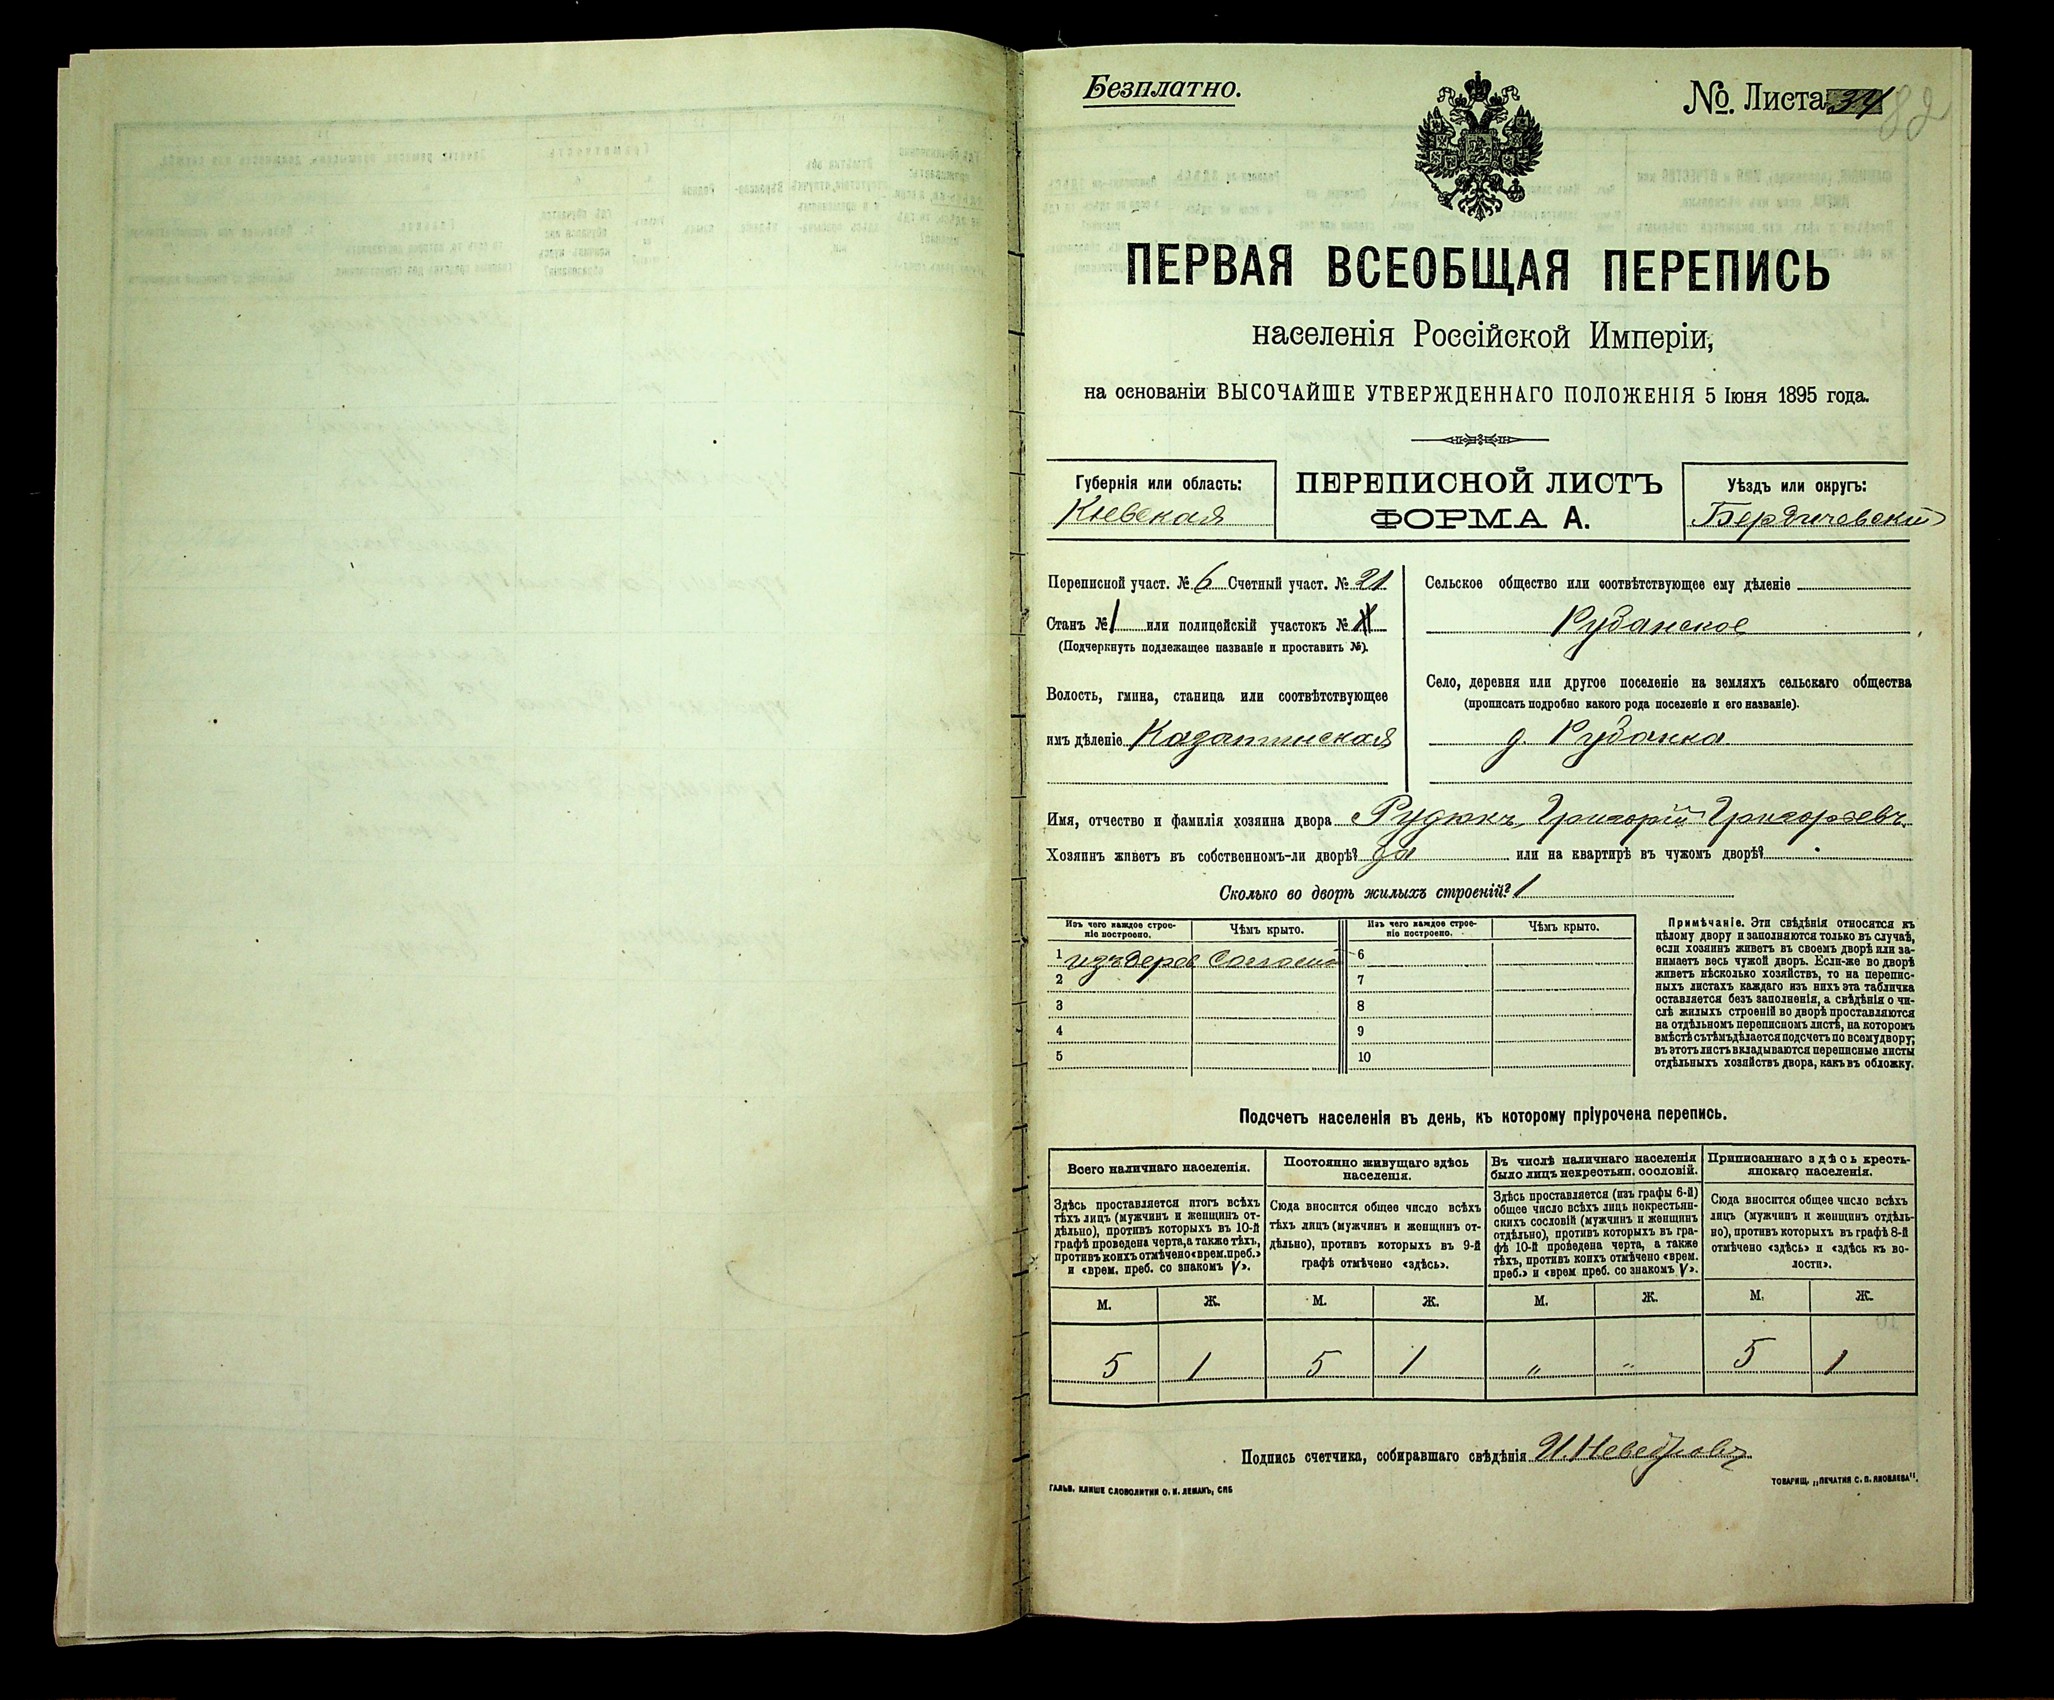 Безплатно.
№ Листа 34
82
ПЕРВАЯ ВСЕОБЩАЯ ПЕРЕПИСЬ
населенія Россійской Имперіи,
на основаніи ВЫСОЧАЙШЕ УТВЕРЖДЕННАГО ПОЛОЖЕНІЯ 5 Іюня 1895 года.
Губернія или область:
Кіевская
ПЕРЕПИСНОЙ ЛИСТЪ
ФОРМА А.
Уѣздъ или округъ:
Бердичевскій
Переписной участ. № 6 Счетный участ. № 21
Станъ № 1 или полицейскій участокъ №
(Подчеркнуть подлежащее названіе и проставить №).
Волость, гмина, станица или соотвѣтствующее
имъ дѣленіе Казатинская
Сельское общество или соотвѣтствующее ему дѣленіе
Рубанское
Село, деревня или другое поселеніе на земляхъ сельскаго общества
(прописать подробно какого рода поселеніе и его названіе).
д. Рубанка
Имя, отчество и фамилія хозяина двора Рудюкъ, Григорій Григорьевъ
Хозяинъ живетъ въ собственномъ-ли дворѣ? да или на квартирѣ въ чужомъ дворѣ?
Сколько во дворѣ жилыхъ строеній? 1
Изъ чего каждое строе-
ніе построено.
Чѣмъ крыто.
Изъ чего каждое строе-
ніе построено.
Чѣмъ крыто.
1 изъ дерев соломой 6
2 7
3 8
4 9
5 10
Примѣчаніе. Эти свѣдѣнія относятся къ
цѣлому двору и заполняются только въ случаѣ,
если хозяинъ живетъ въ своемъ дворѣ или за-
нимаетъ весь чужой дворъ. Если-же во дворѣ
живетъ нѣсколько хозяйствъ, то на перепис-
ныхъ листахъ каждаго изъ нихъ эта табличка
оставляется безъ заполненія, а свѣдѣнія о чи-
слѣ жилыхъ строеній во дворѣ проставляются
на отдѣльномъ переписномъ листѣ, на которомъ
вмѣстѣ съ тѣмъ дѣлается подсчетъ по всему двору;
въ этотъ листъ вкладываются переписные листы
отдѣльныхъ хозяйствъ двора, какъ въ обложку.
Подсчетъ населенія въ день, къ которому пріурочена перепись.
Всего наличнаго населенія.
Здѣсь проставляется итогъ всѣхъ
тѣхъ лицъ (мужчинъ и женщинъ от-
дѣльно), противъ которыхъ въ 10-й
графѣ проведена черта, а также тѣхъ,
противъ коихъ отмѣчено «врем. преб.»
и «врем. преб. со знакомъ V».
Постоянно живущаго здѣсь
населенія.
Сюда вносится общее число всѣхъ
тѣхъ лицъ (мужчинъ и женщинъ от-
дѣльно), противъ которыхъ въ 9-й
графѣ отмѣчено «здѣсь».
Въ числѣ наличнаго населенія
было лицъ некрестьян. сословій.
Здѣсь проставляется (изъ графы 6-й)
общее число всѣхъ лицъ некрестьян-
скихъ сословій (мужчинъ и женщинъ
отдѣльно), противъ которыхъ въ гра-
фѣ 10-й проведена черта, а также
тѣхъ, противъ коихъ отмѣчено «врем.
преб.» и «врем преб. со знакомъ V».
Приписаннаго здѣсь кресть-
янскаго населенія.
Сюда вносится общее число всѣхъ
лицъ (мужчинъ и женщинъ отдѣль-
но), противъ которыхъ въ графѣ 8-й
отмѣчено «здѣсь» и «здѣсь къ во-
лости».
М. Ж. М. Ж. М. Ж. М. Ж.
5 1 5 1 " " 5 1
Подпись счетчика, собиравшаго свѣдѣнія
ГАЛЬВ. КЛИШЕ СЛОВОЛИТНИ О. И. ЛЕМАНЪ, СПБ
ТОВАРИЩ. „ПЕЧАТНЯ С. П. ЯКОВЛЕВА".